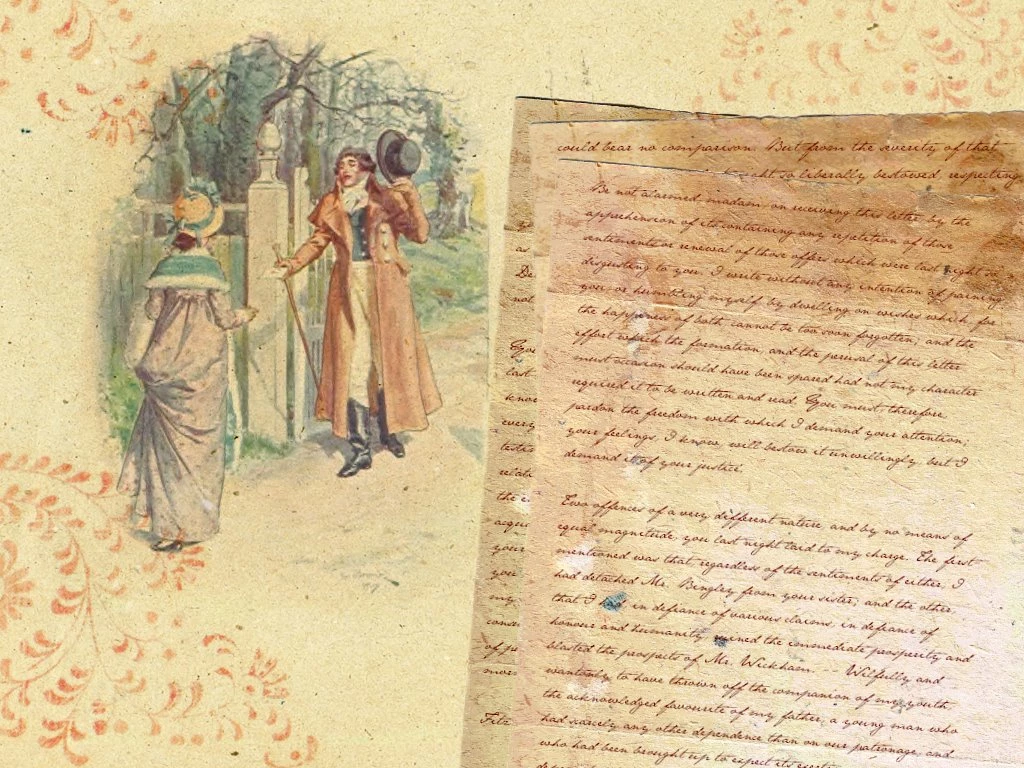 could bear no comparison. But from the severity of that
so liberally bestowed respecting
Be not alarmed, madam, on receiving this letter, by the
apprehension of its containing any repetition of those
sentiments or renewal of those offers which were last night so
disgusting to you. I write without any intention of paining
you, or humbling myself, by dwelling on wishes which, for
the happiness of both, cannot be too soon forgotten; and the
effort which the formation, and the perusal of this letter
must occasion should have been spared had not my character
required it to be written and read. You must, therefore,
pardon the freedom with which I demand your attention;
your feelings, I know, will bestow it unwillingly, but I
demand it of your justice.
Two offences of a very different nature, and by no means of
equal magnitude, you last night laid to my charge. The first
mentioned was that, regardless of the sentiments of either, I
had detached Mr. Bingley from your sister; and the other,
that I had, in defiance of various claims, in defiance of
honour and humanity, ruined the immediate prosperity and
blasted the prospects of Mr. Wickham. -- Wilfully and
wantonly to have thrown off the companion of my youth,
the acknowledged favourite of my father, a young man who
had scarcely any other dependence than on our patronage, and
who had been brought up to expect its
as
De
not
last
know
every
relate
the
acqu
your
you
my
conse
of p
more
Fitz